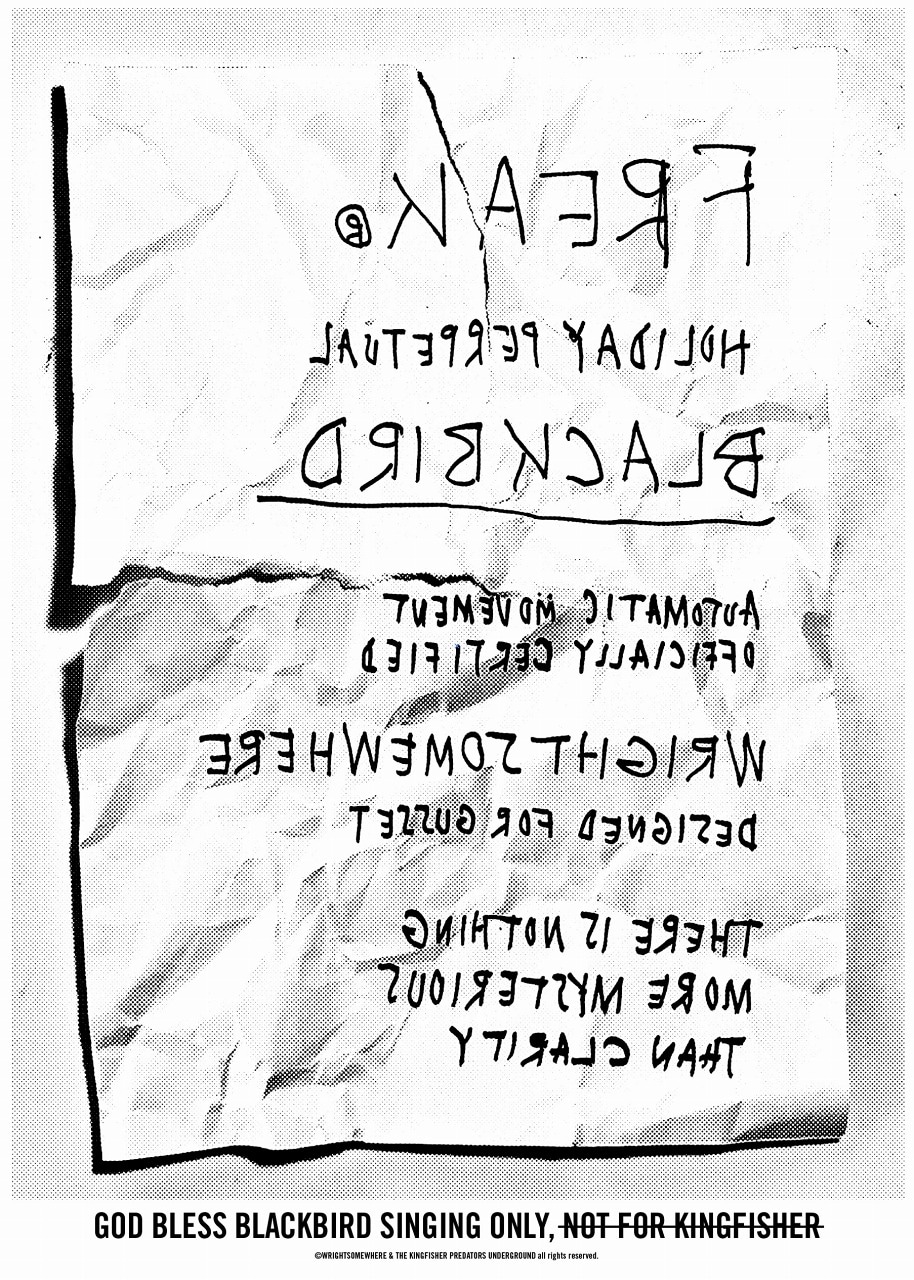 FREAK®
HOLIDAY PERPETUAL
BLACKBIRD
AUTOMATIC MOVEMENT
OFFICIALLY CERTIFIED
WRIGHTSOMEWHERE
DESIGNED FOR GUSSET
THERE IS NOTHING
MORE MYSTERIOUS
THAN CLARITY
GOD BLESS BLACKBIRD SINGING ONLY, NOT FOR KINGFISHER
©WRIGHTSOMEWHERE & THE KINGFISHER PREDATORS UNDERGROUND all rights reserved.